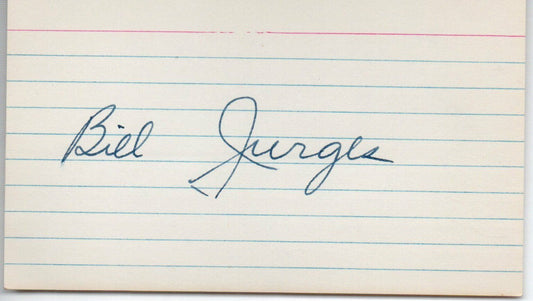 Bill Jurges